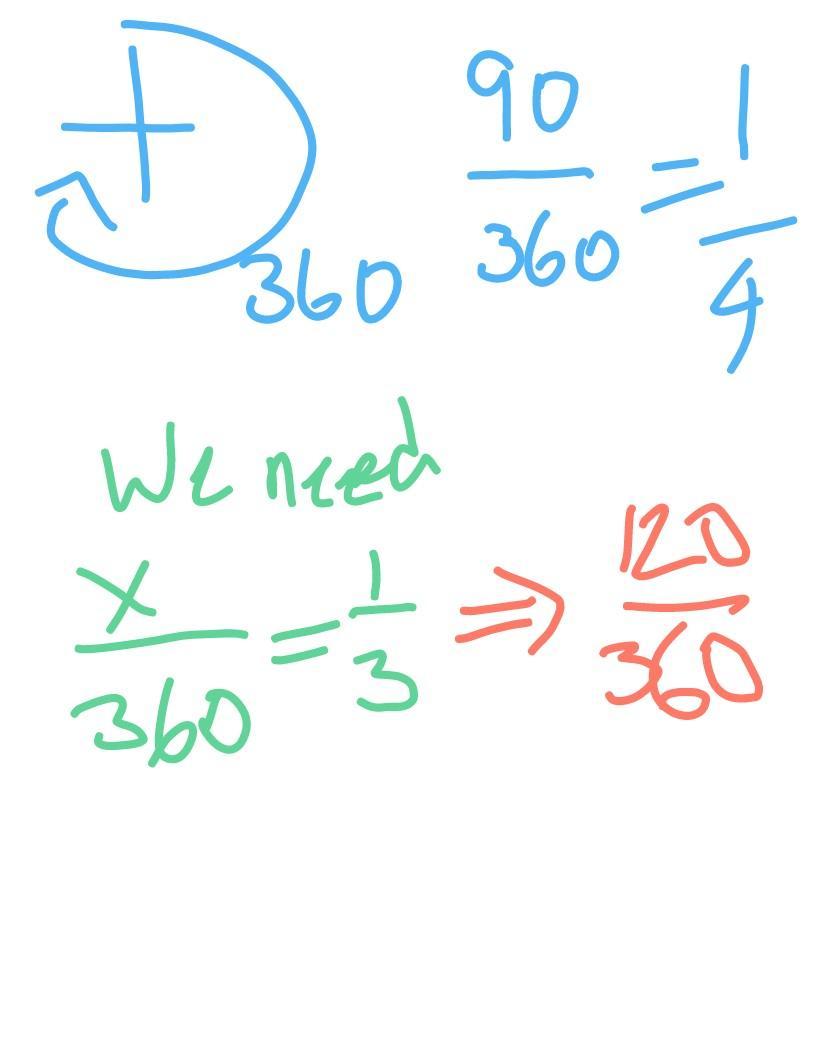 360
90
360
=
1
4
We need
x
360
=
1
3
⇒
120
360